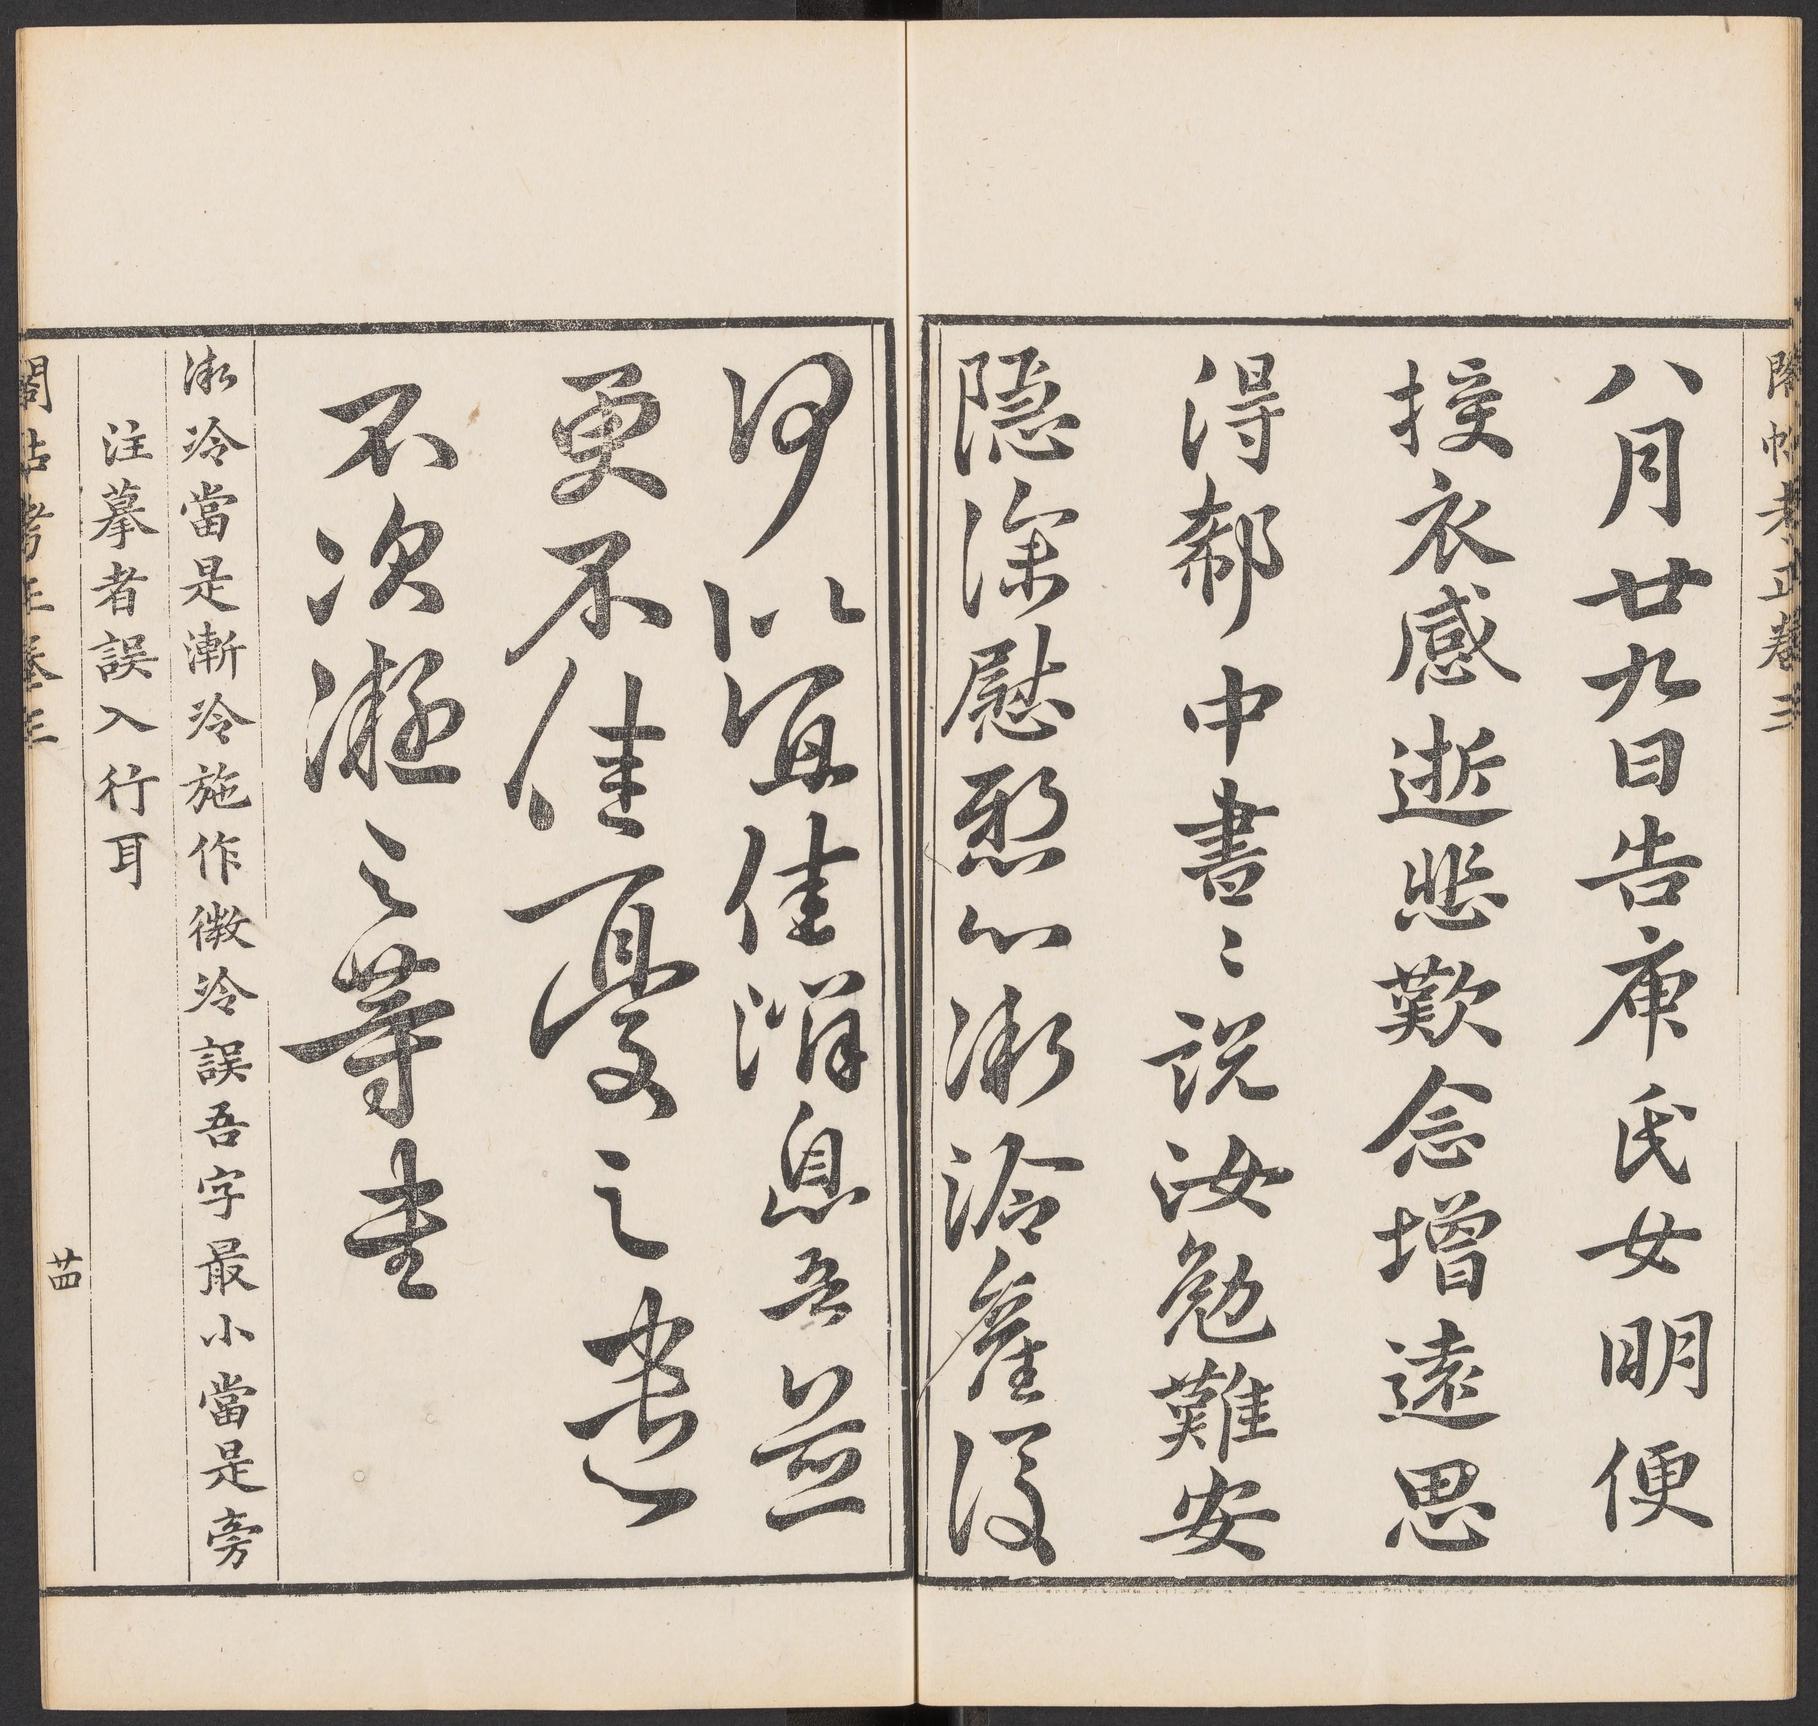 閣帖考正卷三
八月廿九日告庾氏女明便
授衣感逝悲歎念增遠思
得郗中書〻説汝勉難安
隱深慰懸心漸冷産後
何以宜佳消息吾並
更不佳憂之遣
不次凝之等書
漸冷當是漸冷施作微冷誤吾字最小當是旁
注摹者誤入行耳
閣帖考正卷三
廿四